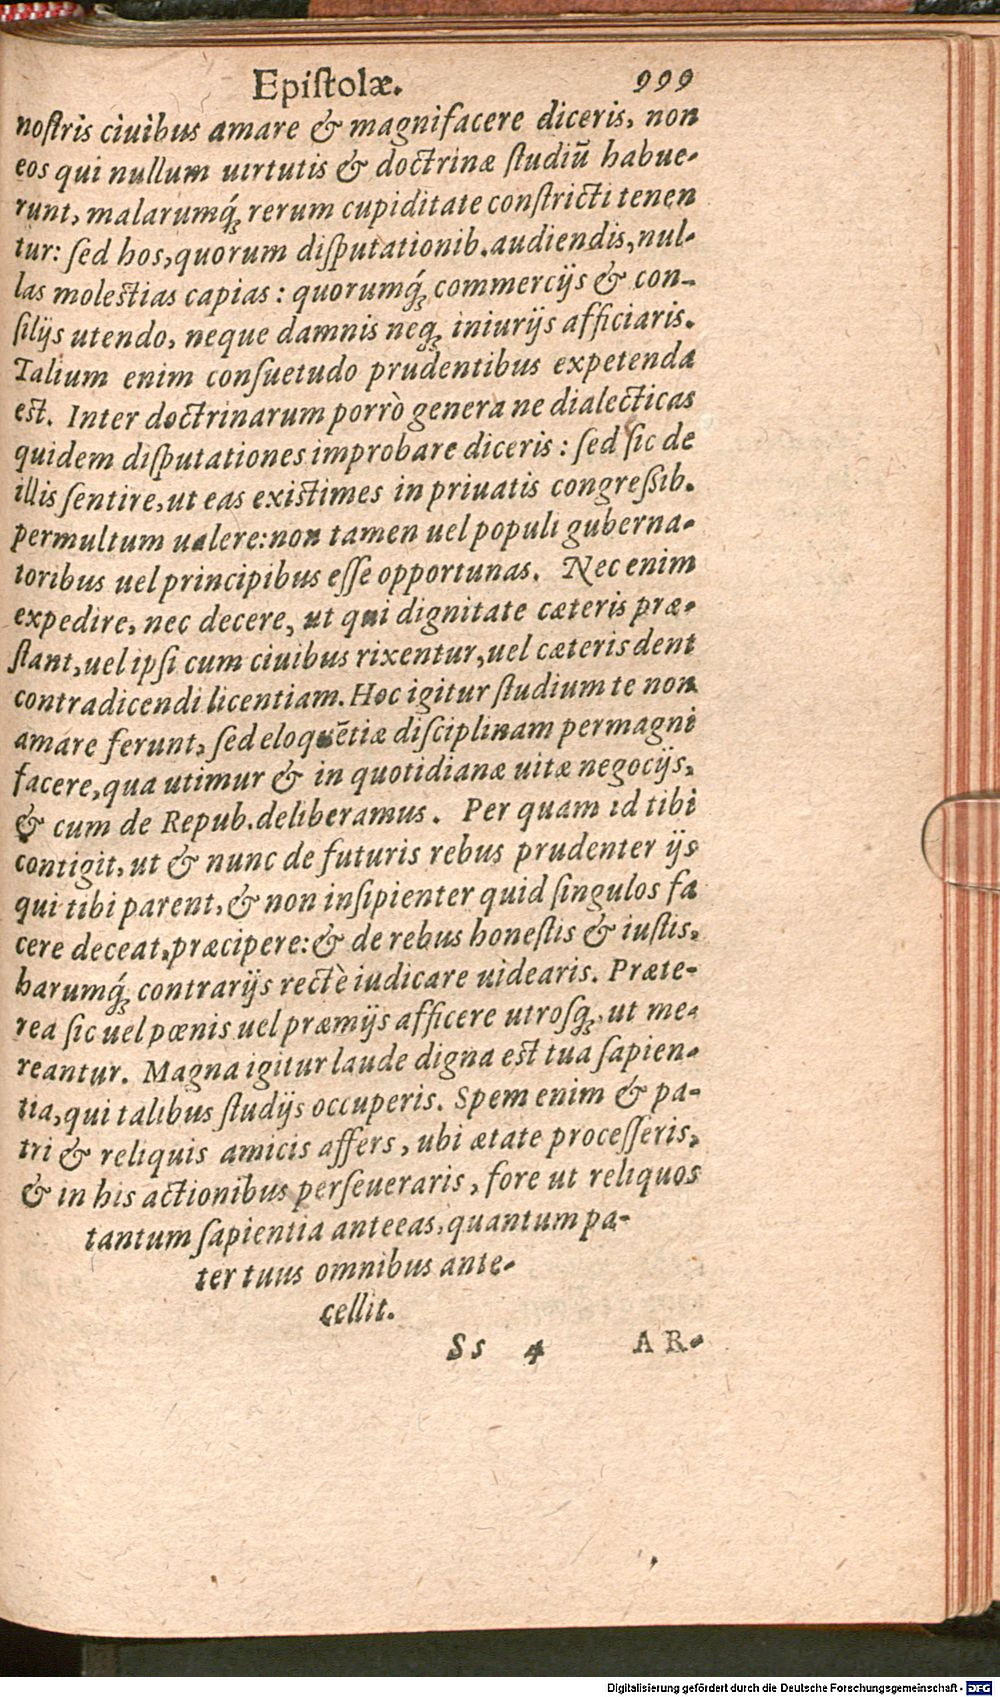 Epiſtolæ. 999
noſtris ciuibus amare & magnifacere diceris, non
eos qui nullum uirtutis & doctrinæ ſtudiũ habue-
runt, malarumq́; rerum cupiditate conſtricti tenen
tur: ſed hos, quorum diſputationib. audiendis, nul-
las moleſtias capias: quorumq́; commercijs & con-
ſilijs utendo, neque damnis neq; iniurijs afficiaris.
Talium enim conſuetudo prudentibus expetenda
eſt. Inter doctrinarum porrò genera ne dialecticas
quidem diſputationes improbare diceris: ſed ſic de
illis ſentire, ut eas exiſtimes in priuatis congreſsib.
permultum ualere: non tamen uel populi guberna-
toribus uel principibus eſſe opportunas. Nec enim
expedire, nec decere, ut qui dignitate cæteris præ-
ſtant, uel ipſi cum ciuibus rixentur, uel cæteris dent
contradicendi licentiam. Hoc igitur ſtudium te non
amare ferunt, ſed eloquẽtiæ diſciplinam permagni
facere, qua utimur & in quotidianæ uitæ negocijs,
& cum de Repub. deliberamus. Per quam id tibi
contigit, ut & nunc de futuris rebus prudenter ijs
qui tibi parent, & non inſipienter quid ſingulos fa
cere deceat, præcipere: & de rebus honeſtis & iuſtis,
harumq́; contrarijs rectè iudicare uidearis. Præte-
rea ſic uel pœnis uel præmijs afficere utroſq; ut me-
reantur. Magna igitur laude digna eſt tua ſapien-
tia, qui talibus ſtudijs occuperis. Spem enim & pa-
tri & reliquis amicis affers, ubi ætate proceſſeris,
& in his actionibus perſeueraris, fore ut reliquos
tantum ſapientia anteeas, quantum pa-
ter tuus omnibus ante-
cellit.
Ss 4 AR-
Digitalisierung gefördert durch die Deutsche Forschungsgemeinschaft - DFG